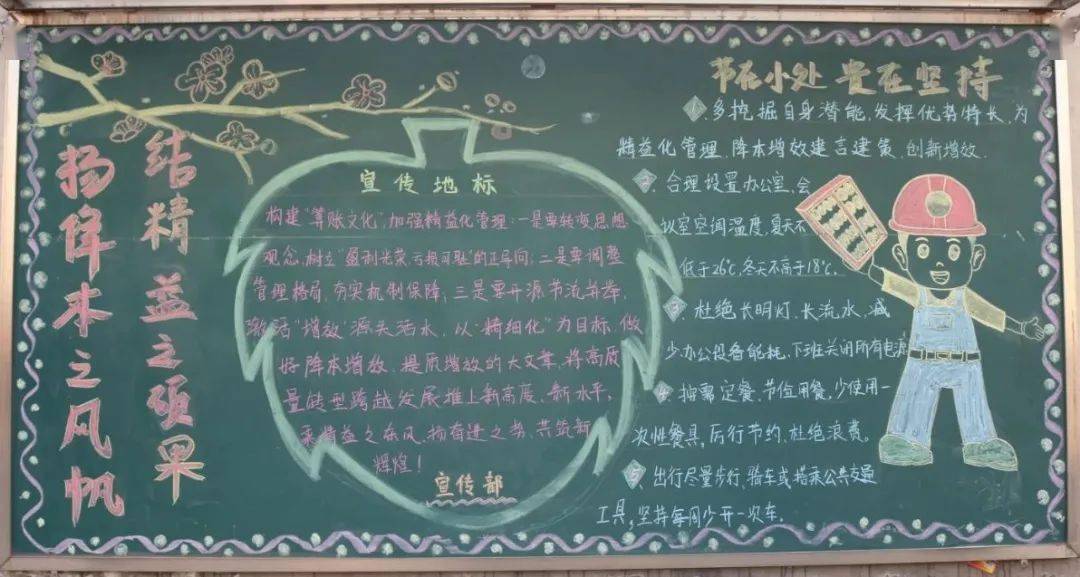 扬降本之风帆
结精益之硕果
宣传地标
构建“算账文化”，加强精益化管理：一是要转变思想
观念，树立“盈利光荣，亏损可耻”的正导向；二是要调整
管理格局，夯实机制保障；三是要开源节流并举，
激活“增效”源头活水，以“精细化”为目标，做
好降本增效、提质增效的大文章，将高质
量转型跨越发展推上新高度、新水平。
乘精益之东风，扬奋进之势，共筑新
辉煌！
宣传部
节在小处 贵在坚持
1、多挖掘自身潜能，发挥优势特长，为
精益化管理、降本增效建言建策，创新增效。
2、合理设置办公室，会
议室空调温度，夏天不
低于26℃，冬天不高于18℃。
3、杜绝长明灯、长流水，减
少办公设备能耗，下班关闭所有电源
4、按需定餐、节位用餐，少使用一
次性餐具，厉行节约，杜绝浪费。
5、出行尽量步行、骑车或搭乘公共交通
工具，坚持每周少开一次车。